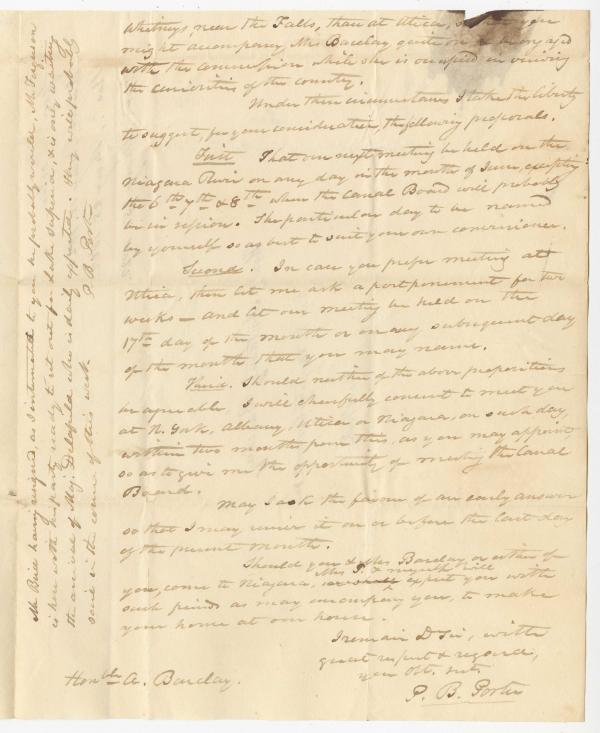 Whitneys, near the Falls, than at Utica, & that you
might accompany Mrs Barclay quite on
with the commission while she is occupied in viewing
the curiosities of the country.
Under these circumstances I take the liberty
to suggest, for your consideration, the following proposals.
First. That our next meeting be held on the
Niagara River on any day in the month of June, excepting
the 6th 7th & 8th when the Canal Board will probably
be in session. The particular day to be named
by yourself so as best to suit your own convenience.
Second. In case you prefer meeting at
Utica, then let me ask a postponement for two
weeks — and let our meeting be held on the
17th day of the month or on any subsequent day
of the month that you may name.
Third. Should neither of the above propositions
be agreeable I will cheerfully consent to meet you
at N. York, Albany, Utica or Niagara, on such day,
within two months from this, as you may appoint,
so as to give me the opportunity of meeting the Canal
Board.
May I ask the favour of an early answer
so that I may receive it on or before the last day
of the present month.
Should you & Mrs Barclay or either of
you, come to Niagara, Mrs P. & myself will expect you with
such friends as may accompany you, to make
your home at our house.
I remain Dr Sir, with
great respect & regard,
your Obt. Servt.
P. B. Porter
Honble A. Barclay.
Mr Bird having resigned, as I intimated to you he probably would, Mr Ferguson
is here with his party ready to set out for Lake Superior & is only waiting
the arrival of Maj. Delafield who is daily expected. They will probably
sail in the course of this week
P. B. Porter